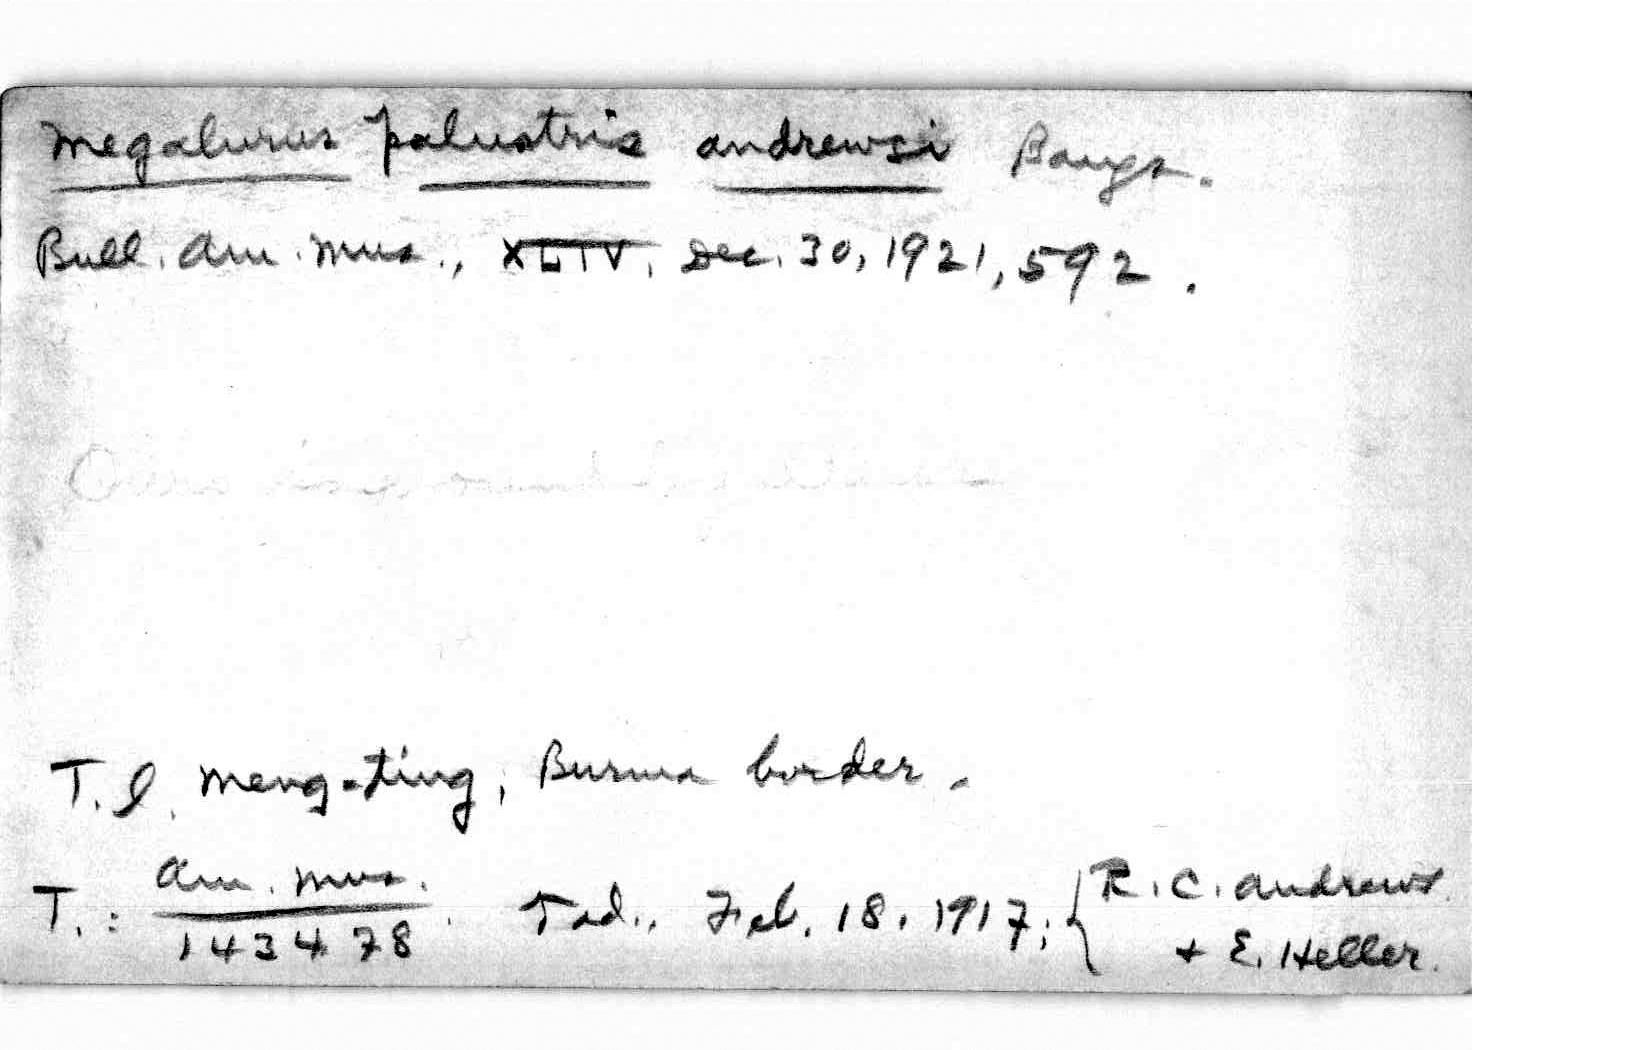 Megalurus palustris andrewsi Bangs.
Bull. Am. Mus., XLIV, Dec. 30, 1921, 592.
T. l. Meng-ting, Burma border.
T.: Am. Mus. 143478. ad., Feb. 18, 1917; { R. C. Andrews
+ E. Heller.